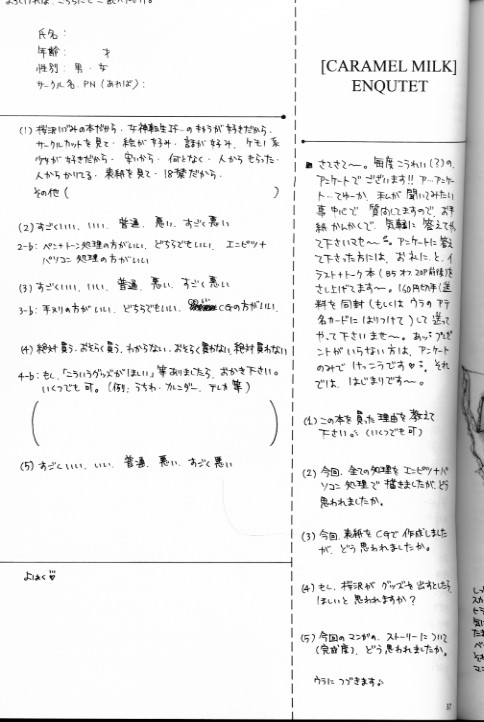 氏名:
年齢:　　才
性別: 男・女
サークル名. PN (あれば):
(1) 桜沢いづみの本だから・女神転生if…のキョウが好きだから・
サークルカットを見て・絵が好み・話が好み・ケモノ系
少年が好きだから・安いから・何となく・人からもらった・
人からかりてる・表紙を見て・18禁だから・
その他 (
(2) すごくいい、いい、普通、悪い、すごく悪い
2-b: ペン+トーン処理の方がいい、どちらでもいい、エンピツ+
パソコン処理の方がいい
(3) すごくいい、いい、普通、悪い、すごく悪い
3-b: 手ヌリの方がいい、どちらでもいい、CGの方がいい、
(4) 絶対買う、おそらく買う、わからない、おそらく買わない、絶対買わない
4-b: もし、「こういうグッズがほしい」等ありましたら、おかき下さい。
いくつでも可。(例: うちわ・カレンダー、テレカ 等)
(5) すごくいい、いい、普通、悪い、すごく悪い
よはく♡
[CARAMEL MILK]
ENQUTET
さてさて〜。毎度こうれい(?)の、
アンケートでございます!! ア…アンケー
ト…てゆーか、私が聞いてみたい
事中心で質問してますので、お手
紙かんかくで、気軽に答えてやっ
て下さいませ〜。アンケートに答え
て下さった方には、お礼に、と、イ
ラスト+トーク本 (B5オフ.20P前後)を
さし上げてます〜。160円切手(送
料を同封(もしくはウラのアテ
名カードにはりつけて)して送って
やって下さいませ〜。あっ、プレゼ
ントがいらない方は、アンケート
のみでけっこうです♡。それ
では、はじまりです〜。
(1) この本を買った理由を教えて
下さい。(いくつでも可)
(2) 今回、全ての処理をエンピツ+パ
ソコン処理で描きましたが、どう
思われましたか。
(3) 今回、表紙をCGで作成しました
が、どう思われましたか。
(4) もし、桜沢がグッズを出すとしたら、
ほしいと思われますか?
(5) 今回のマンガの、ストーリーについて
(完成度)、どう思われましたか。
ウラにつづきます♪
37